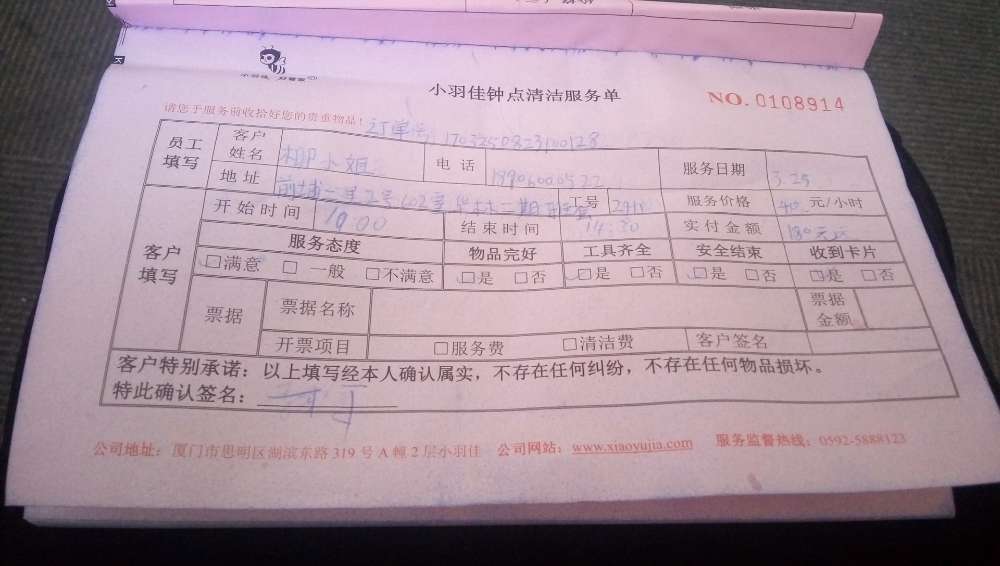 小羽佳
小羽佳钟点清洁服务单
NO. 0108914
请您于服务前收拾好您的贵重物品！
订单号
员工填写
客户姓名 柳小姐
电话
服务日期 3.25
地址
工号
服务价格 40 元/小时
开始时间
结束时间 14:30
实付金额
客户填写
服务态度 物品完好 工具齐全 安全结束 收到卡片
□满意 □一般 □不满意 □是 □否 □是 □否 □是 □否 □是 □否
票据
票据名称
票据金额
开票项目 □服务费 □清洁费 客户签名
客户特别承诺：以上填写经本人确认属实，不存在任何纠纷，不存在任何物品损坏。
特此确认签名：
公司地址：厦门市思明区湖滨东路 319 号 A 幢 2 层小羽佳 公司网站：www.xiaoyujia.com 服务监督热线：0592-5888123